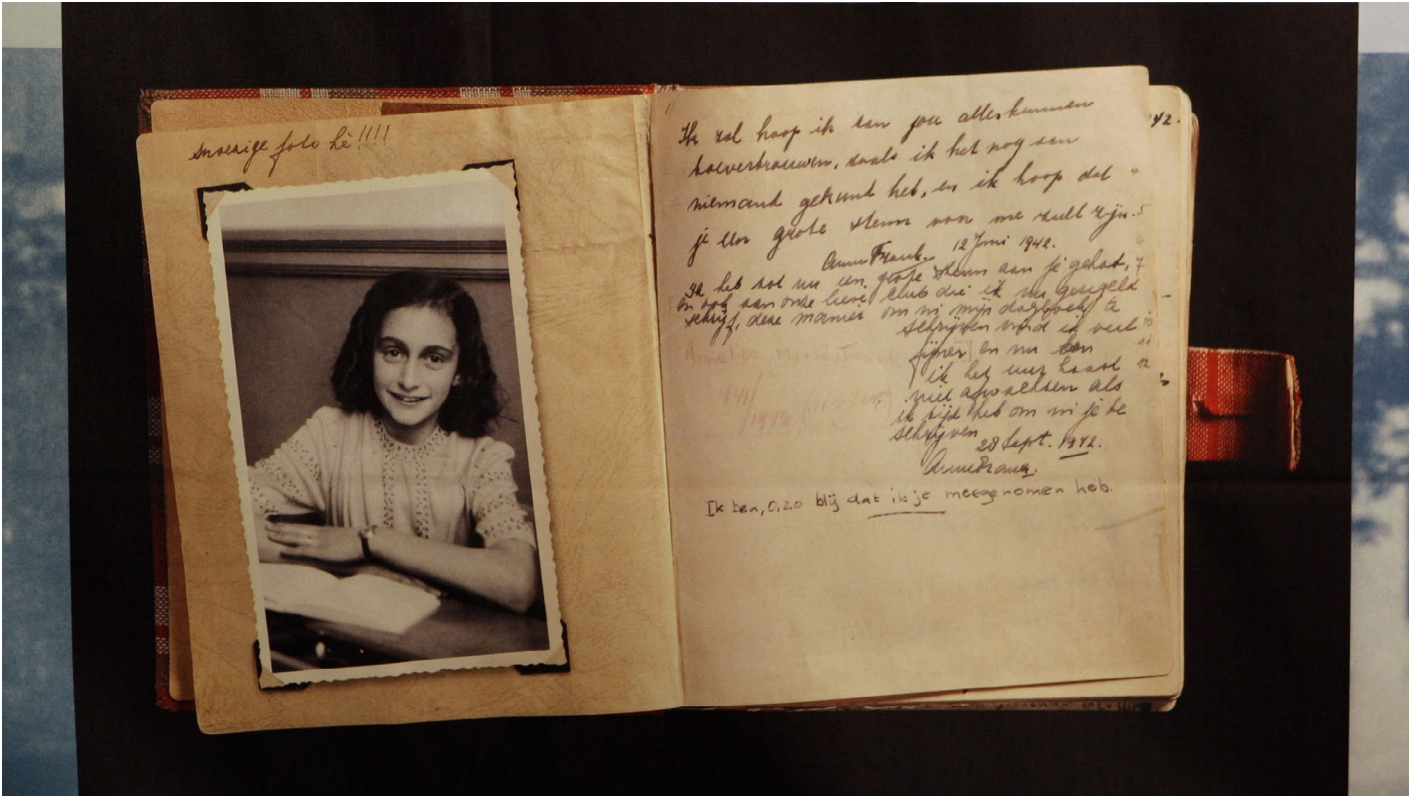 snoezige foto hè!!!!
Ik zal hoop ik aan jou alles kunnen
toevertrouwen, zoals ik het nog aan
niemand gekund heb, en ik hoop dat
je een grote steun voor me zult zijn.
Anne Frank. 12 Juni 1942.
Ik heb tot nu een grote steun aan je gehad,
en ook aan onze lieve club die ik nu geregeld
schrijf, deze manier om in mijn dagboek te
schrijven vind ik veel
fijner en nu kan
ik het uur haast
niet afwachten als
ik tijd heb om in je te
schrijven
28 Sept. 1942.
Anne Frank.
Ik ben, o, zo blij dat ik je meegenomen heb.
42.
4
5
7
10
11
12
1941/
1942